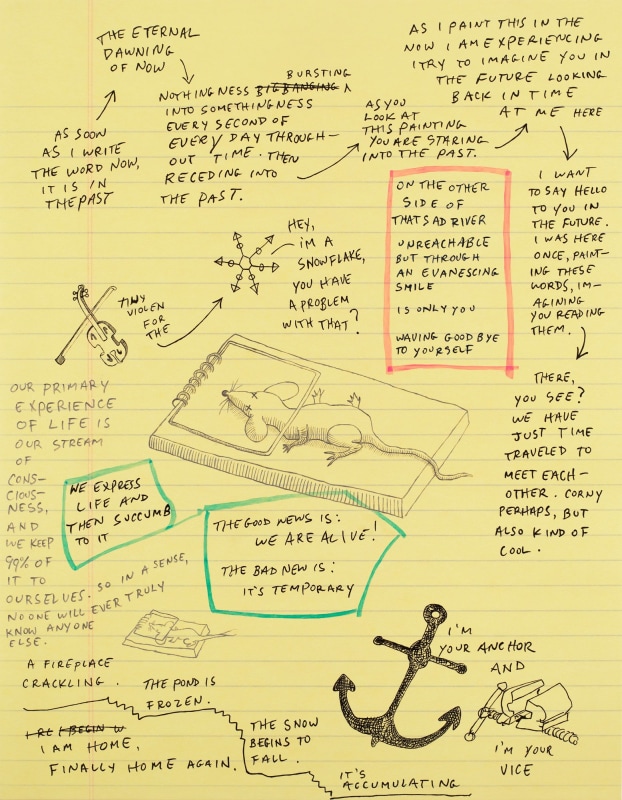 AS SOON
AS I WRITE
THE WORD NOW,
IT IS IN
THE PAST
THE ETERNAL
DAWNING
OF NOW
BURSTING
NOTHINGNESS BIG BANGING
INTO SOMETHINGNESS
EVERY SECOND OF
EVERY DAY THROUGH-
OUT TIME. THEN
RECEDING INTO
THE PAST.
AS YOU
LOOK AT
THIS PAINTING
YOU ARE STARING
INTO THE PAST.
AS I PAINT THIS IN THE
NOW I AM EXPERIENCING
I TRY TO IMAGINE YOU IN
THE FUTURE LOOKING
BACK IN TIME
AT ME HERE
I WANT
TO SAY HELLO
TO YOU IN
THE FUTURE.
I WAS HERE
ONCE, PAINT-
ING THESE
WORDS, IM-
AGINING
YOU READING
THEM.
THERE,
YOU SEE?
WE HAVE
JUST TIME
TRAVELED TO
MEET EACH-
OTHER. CORNY
PERHAPS, BUT
ALSO KIND OF
COOL.
ON THE OTHER
SIDE OF
THAT SAD RIVER
UNREACHABLE
BUT THROUGH
AN EVANESCING
SMILE
IS ONLY YOU
WAVING GOODBYE
TO YOURSELF
TINY
VIOLEN
FOR THE
HEY,
I'M A
SNOWFLAKE,
YOU HAVE
A PROBLEM
WITH THAT?
OUR PRIMARY
EXPERIENCE
OF LIFE IS
OUR STREAM
OF
CONS-
CIOUS-
NESS,
AND
WE KEEP
99% OF
IT TO
OURSELVES. SO IN A SENSE,
NO ONE WILL EVER TRULY
KNOW ANYONE
ELSE.
WE EXPRESS
LIFE AND
THEN SUCCUMB
TO IT
THE GOOD NEWS IS:
WE ARE ALIVE!
THE BAD NEW IS:
IT'S TEMPORARY
I'M
YOUR ANCHOR
AND
I'M YOUR
VICE
A FIREPLACE
CRACKLING.
THE POND IS
FROZEN.
I AM HOME,
FINALLY HOME AGAIN.
THE SNOW
BEGINS TO
FALL.
IT'S
ACCUMULATING